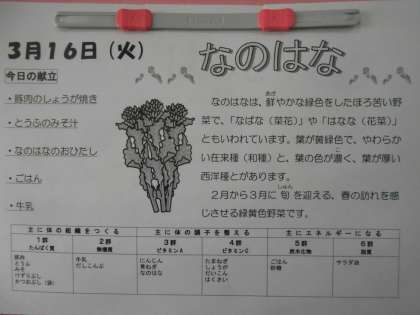 3月16日（火）
なのはな
今日の献立
・豚肉のしょうが焼き
・とうふのみそ汁
・なのはなのおひたし
・ごはん
・牛乳
なのはなは、鮮やかな緑色をしたほろ苦い野
菜で、「なばな（菜花）」や「はなな（花菜）」
ともいわれています。葉が黄緑色で、やわらか
い在来種（和種）と、葉の色が濃く、葉が厚い
西洋種とがあります。
2月から3月に旬を迎える、春の訪れを感
じさせる緑黄色野菜です。
主に体の組織をつくる 主に体の調子を整える 主にエネルギーになる
1群 2群 3群 4群 5群 6群
たんぱく質 無機質 ビタミンA ビタミンC 炭水化物 脂質
豚肉 牛乳 にんじん たまねぎ ごはん サラダ油
とうふ だしこんぶ 青ねぎ しょうが 砂糖
みそ なのはな だいこん
けずりぶし はくさい
かつおぶし（袋）